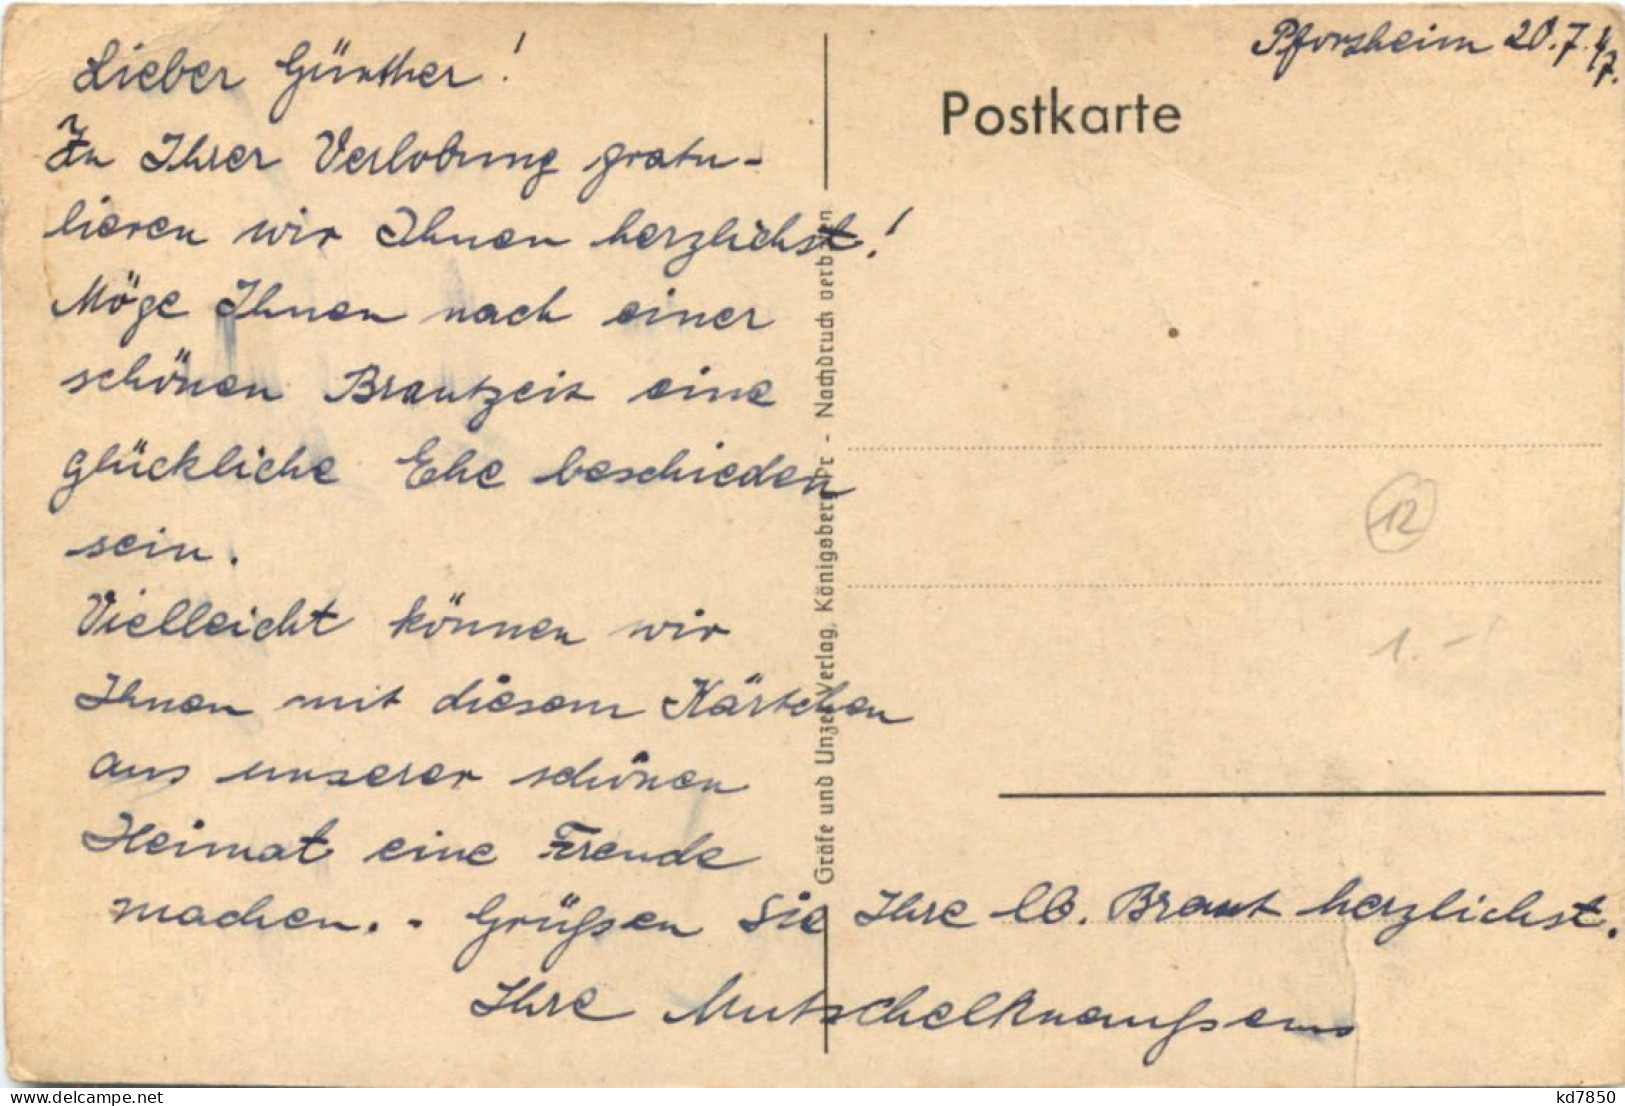 Pforzheim 20.7.47.
Postkarte
Lieber Günther!
Zu Ihrer Verlobung gratu-
lieren wir Ihnen herzlichst!
Möge Ihnen nach einer
schönen Brautzeit eine
glückliche Ehe beschieden
sein.
Vielleicht können wir
Ihnen mit diesem Kärtchen
aus unserer schönen
Heimat eine Freude
machen. - Grüßen Sie Ihre lb. Braut herzlichst.
Ihre Mutschelknaußens
Gräfe und Unzer Verlag, Königsberg Pr - Nachdruck verboten
12
1.-
delcampe.net
kd7850